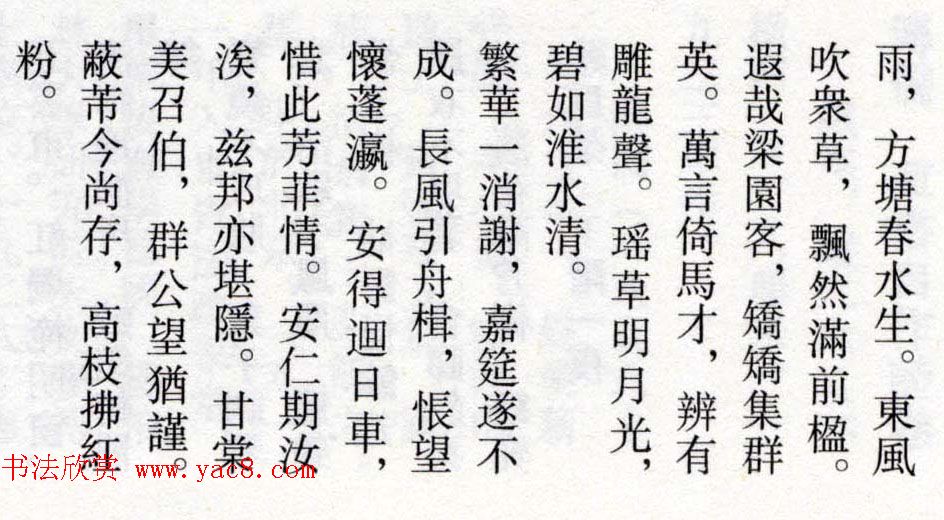 雨，方塘春水生。東風
吹衆草，飄然滿前楹。
遐哉梁園客，矯矯集群
英。萬言倚馬才，辨有
雕龍聲。瑶草明月光，
碧如淮水清。
繁華一消謝，嘉筵遂不
成。長風引舟楫，悵望
懷蓬瀛。安得迴日車，
惜此芳菲情。安仁期汝
涘，兹邦亦堪隱。甘棠
美召伯，群公望猶謹。
蔽芾今尚存，高枝拂紅
粉。
书法欣赏 www.yac8.com